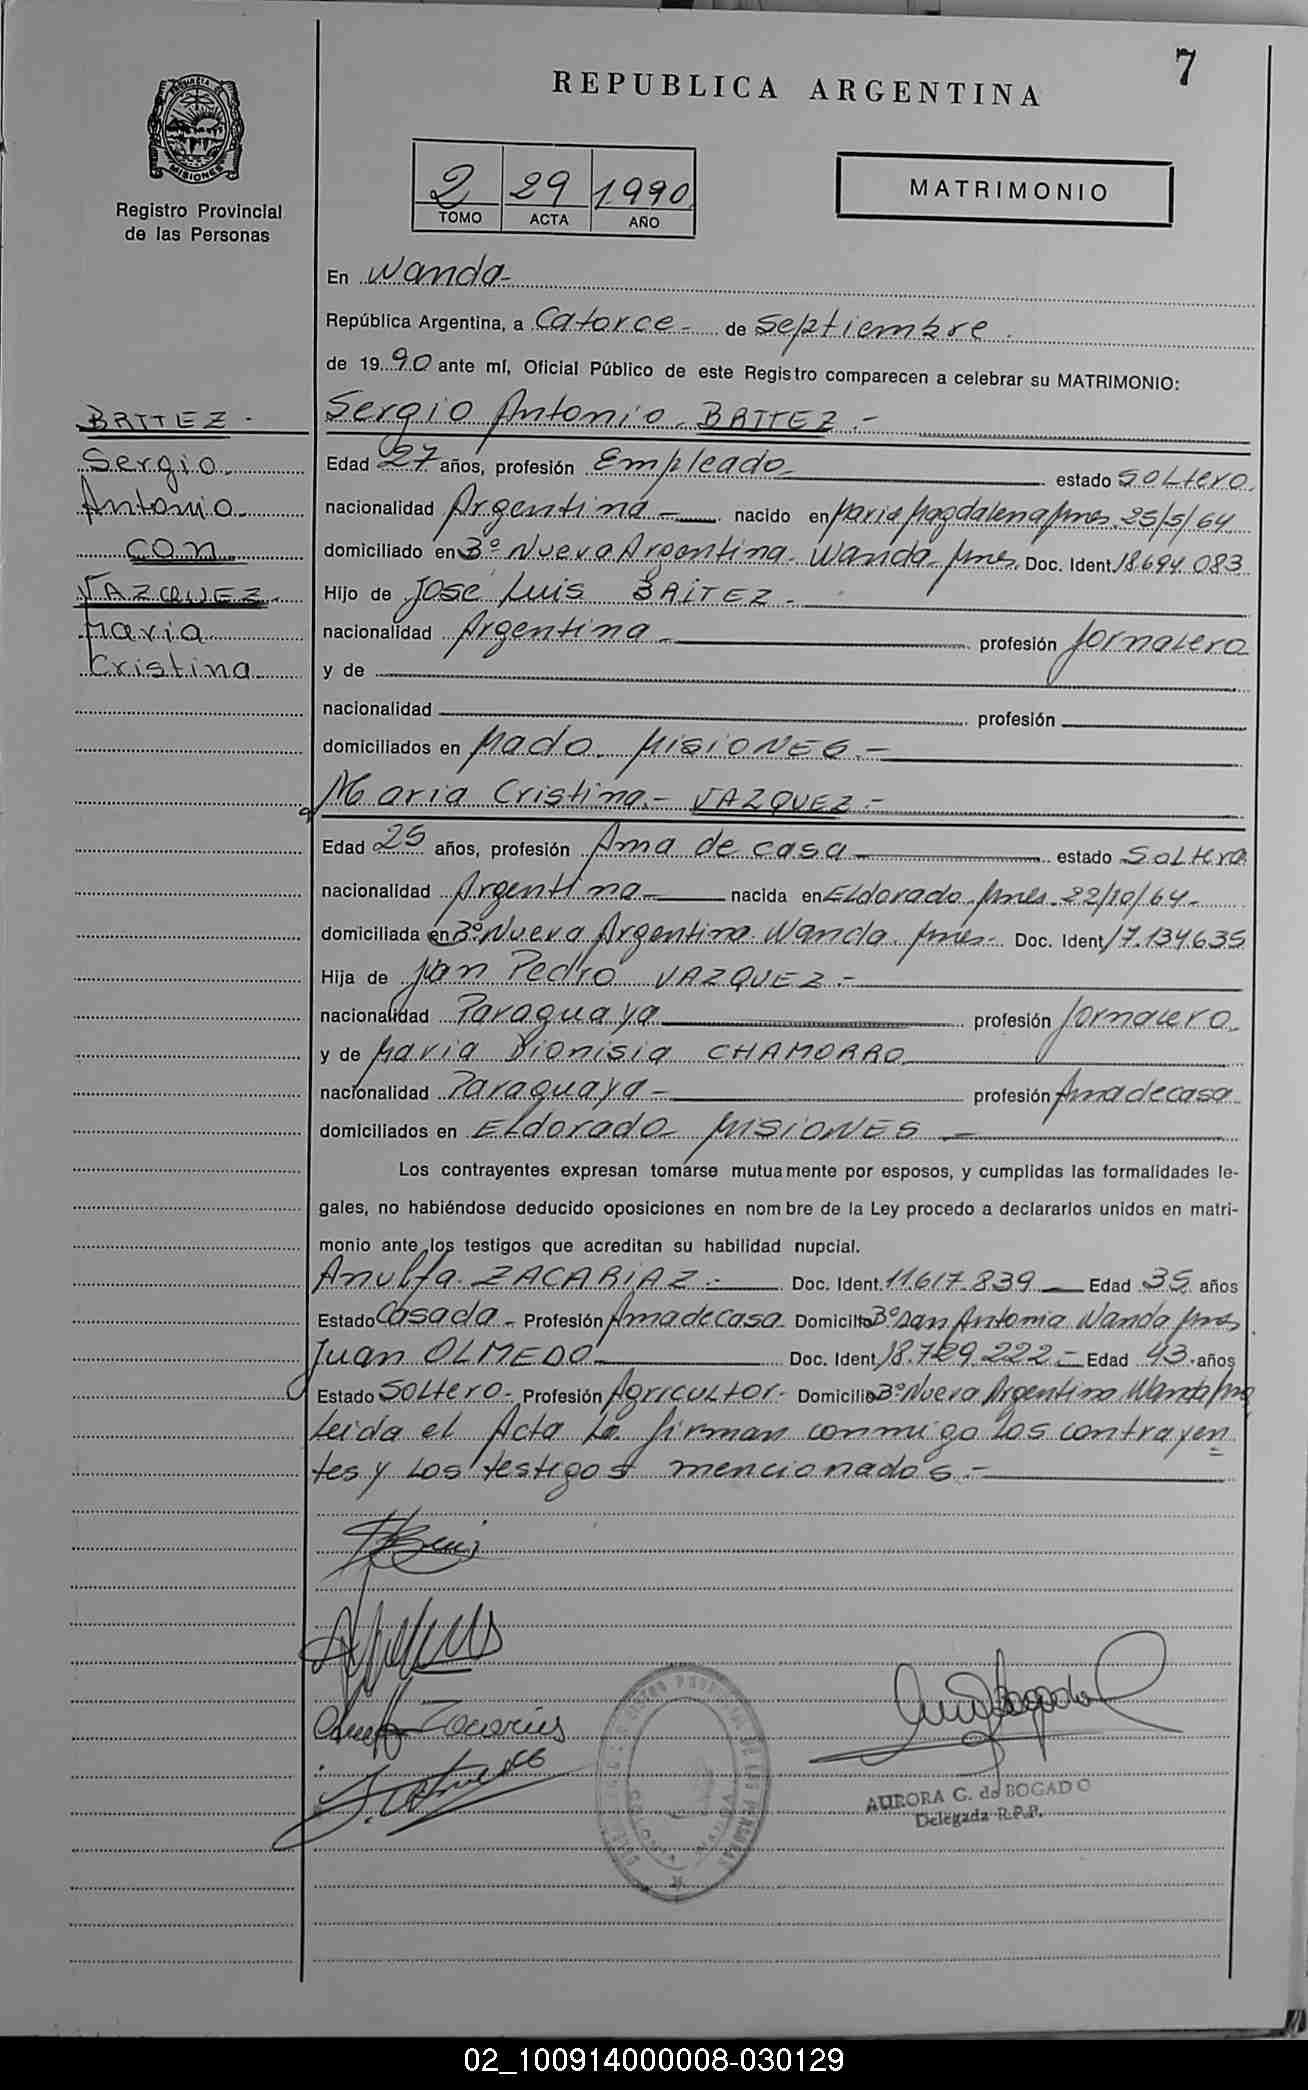 7
REPUBLICA ARGENTINA
PROVINCIA DE
MISIONES
Registro Provincial
de las Personas
2 29 1990
TOMO ACTA AÑO
MATRIMONIO
En Wanda-
República Argentina, a Catorce - de Septiembre.
de 1990 ante mí, Oficial Público de este Registro comparecen a celebrar su MATRIMONIO:
BAITEZ -
Sergio
Antonio
con
VAZQUEZ -
Maria
Cristina
Sergio Antonio - BAITEZ.-
Edad 27 años, profesión Empleado estado soltero.
nacionalidad Argentina - nacido en Maria Magdalena Mnes. 25/5/64
domiciliado en Bº Nueva Argentina - Wanda Mnes. Doc. Ident. 18.694.083
Hijo de José Luis BAITEZ -
nacionalidad Argentina - profesión Jornalero
y de
nacionalidad profesión
domiciliados en Mado. MISIONES.-
y Maria Cristina.- VAZQUEZ.-
Edad 25 años, profesión Ama de casa estado soltera
nacionalidad Argentina - nacida en Eldorado Mnes. 22/10/64-
domiciliada en Bº Nueva Argentina. Wanda. Mnes- Doc. Ident 17.134.635
Hija de Juan Pedro VAZQUEZ.-
nacionalidad Paraguaya profesión Jornalero
y de Maria Dionisia CHAMORRO
nacionalidad Paraguaya - profesión Ama de casa
domiciliados en Eldorado MISIONES -
Los contrayentes expresan tomarse mutuamente por esposos, y cumplidas las formalidades le-
gales, no habiéndose deducido oposiciones en nombre de la Ley procedo a declararlos unidos en matri-
monio ante los testigos que acreditan su habilidad nupcial.
Anulfa ZACARIAZ.- Doc. Ident. 11.617.839 - Edad 35 años
Estado Casada - Profesión Ama de casa Domicilio Bº San Antonio Wanda Mnes
Juan OLMEDO Doc. Ident. 18.729.222 - Edad 43 años
Estado Soltero - Profesión Agricultor - Domicilio Bº Nueva Argentina Wanda Mns
Leida el Acta la firman conmigo los contrayen
tes y los testigos mencionados.-
Zacarias
AURORA G. de BOGADO
Delegada R.P.P.
02_100914000008-030129